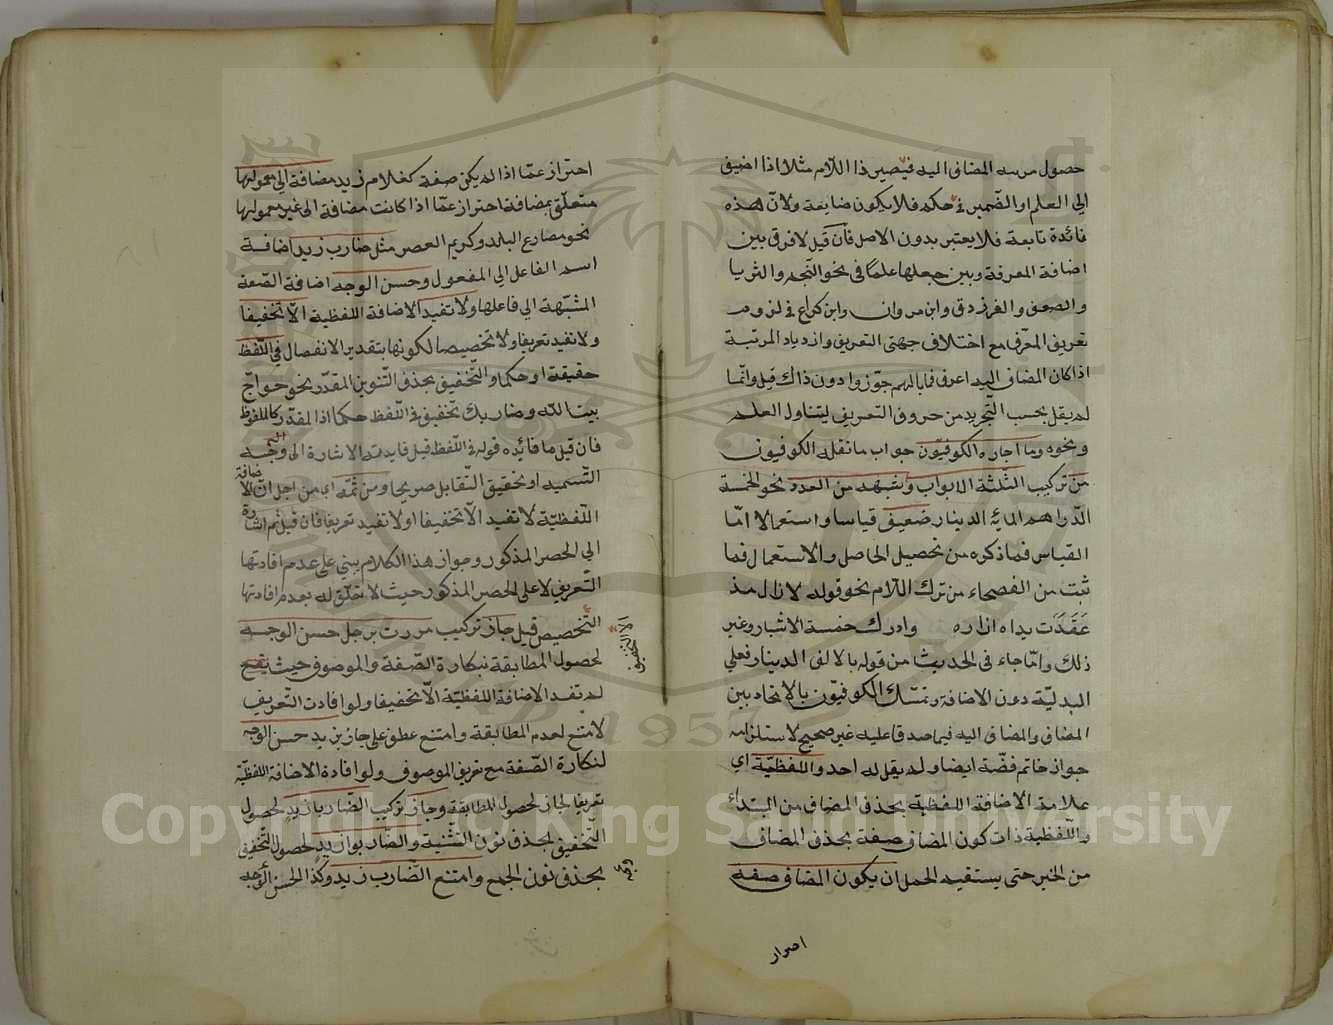 حصول مرسه المضاف اليه فيصير ذا اللام مثلا اذا اضيف
الى العلم او الضمير فى حكمه فلا يكون ضايعة ولانّ هذه
فائدة تابعة فلا يعتبر بدون الاصل فان قيل لا فرق بين
اضافة المعرفة وبين جعلها علما فى نحو النجم والثريا
والصعق والفرزدق وابن مروان وابن كراع فى لزوم
تعريف المعرّف مع اختلاف جهتى التعريف وازدياد المرتبة
اذا كان المضاف اليه اعرف فما بالهم جوّزوا دون ذاك قيل وانّما
لم يقل بحسب التجريد من حروف التعريف ليتناول العلم
ونحوه وما اجازه الكوفيّون جواب ما نقله الكوفيون
من تركيب الثلثة الابواب وشبهه من العدد نحو الخمسة
الدراهم المائة الدينار ضعيف قياسا واستعمالا امّا
القياس فما ذكره من تحصيل الحاصل والاستعمال فما
ثبت من الفصحاء من ترك اللام نحو قوله لا زال مذ
عَقَدَت يداه ازاره وادرك خمسة الاشبار وغير
ذلك وامّا جاء فى الحديث من قوله بالالف الدينار فعلى
البدليّة دون الاضافة وتمسّك الكوفيّون بالاتحاد بين
المضاف والمضاف اليه فيما صدقا عليه غير صحيح لاستلزامه
جواز خاتم فضّة ايضا ولم يقل له احد واللفظيّة اى
علامة الاضافة اللفظية بحذف المضاف من المبتداء
واللفظية ذات كون المضاف صفة بحذف المضاف
من الخبر حتى يستقيم الحمل ان يكون المضاف صفة
احتراز
احتراز عمّا اذا لم يكن صفة كغلام زيد مضافة الى معمولها
متعلّق بمضافة احتراز عمّا اذا كانت مضافة الى غير معمولها
نحو مصارع البلد وكريم العصر مثل ضارب زيد اضافة
اسم الفاعل الى المفعول وحسن الوجه اضافة الصّفة
المشبّهة الى فاعلها ولا تفيد الاضافة اللفظية الّا تخفيفا
ولا تفيد تعريفا ولا تخصيصا لكونها بتقدير الانفصال فى اللّفظ
حقيقة او حكما والتخفيف بحذف التّنوين المقدّر نحو حواجّ
بيت اللّه وضاربك تخفيف فى اللّفظ حكما اذ المقدّر كالملفوظ
فان قيل ما فائدة قوله فى اللّفظ قيل فايدته الاشارة الى وجه
التّسمية او تحقيق التّقابل صريحا ومن ثمّه اى من اجل انّ الاضافة
اللّفظيّة لا تفيد الّا تخفيفا او لا تفيد تعريفا فان قيل ثم اشارة
الى الحصر المذكور وجواز هذا الكلام يبنى على عدم افادتها
التّعريف لا على الحصر المذكور حيث لا تعلّق له بعدم افادتها
التخصيص قيل جاز تركيب مررت برجل حسن الوجه
لحصول المطابقة بنكارة الصّفة والموصوف حيث
لم تفد الاضافة اللفظيّة الّا تخفيفا ولو افادت التّعريف
لامتنع لعدم المطابقة وامتنع عطف على جاز بزيد حسن الوجه
لنكارة الصّفة مع تعريف الموصوف ولو افادة الاضافة اللفظيّة
تعريفا لجاز لحصول المطابقة وجاز تركيب الضّاربا زيد لحصول
التّخفيف بحذف نون التّثنية والضّاربوا زيد لحصول التّخفيف
بحذف نون الجمع وامتنع الضّارب زيد وكذا الحسن الوجه
الا التخفيف
Copyright © King Saud University
1957